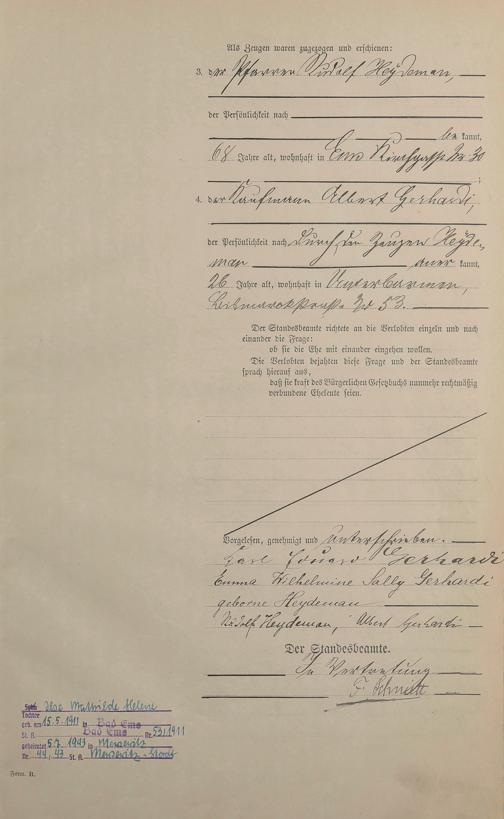 Als Zeugen waren zugezogen und erschienen:
3. der Pfarrer Rudolf Heydeman,
der Persönlichkeit nach
be kannt,
68 Jahre alt, wohnhaft in Ems Kirchgasse Nr 30
;
4. der Kaufmann Albert Gerhardi,
der Persönlichkeit nach durch den Zeugen Heyde-
man aner kannt,
26 Jahre alt, wohnhaft in Unterbarmen,
Bismarckstrasse No 53.
Der Standesbeamte richtete an die Verlobten einzeln und nach
einander die Frage:
ob sie die Ehe mit einander eingehen wollen.
Die Verlobten bejahten diese Frage und der Standesbeamte
sprach hierauf aus,
daß sie kraft des Bürgerlichen Gesetzbuchs nunmehr rechtmäßig
verbundene Eheleute seien.
Vorgelesen, genehmigt und unterschrieben.
Karl Eduard Gerhardi
Emma Wilhelmine Sally Gerhardi
geborne Heydeman
Rudolf Heydeman, Albert Gerhardi
Der Standesbeamte.
In Vertretung
F. Schmitt
Sohn Ilse Mathilde Helene
Tochter
geb. am 15.5.1911 in Bad Ems
St. A. Bad Ems Nr. 53/1911
geheiratet 5.7.1943 in
Nr. 44/43 St. A.
Form. B.